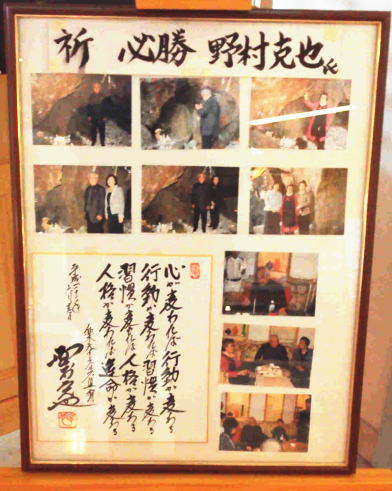 祈 必勝 野村克也氏
心が変われば行動が変わる
行動が変われば習慣が変わる
習慣が変われば人格が変わる
人格が変われば運命が変わる
平成